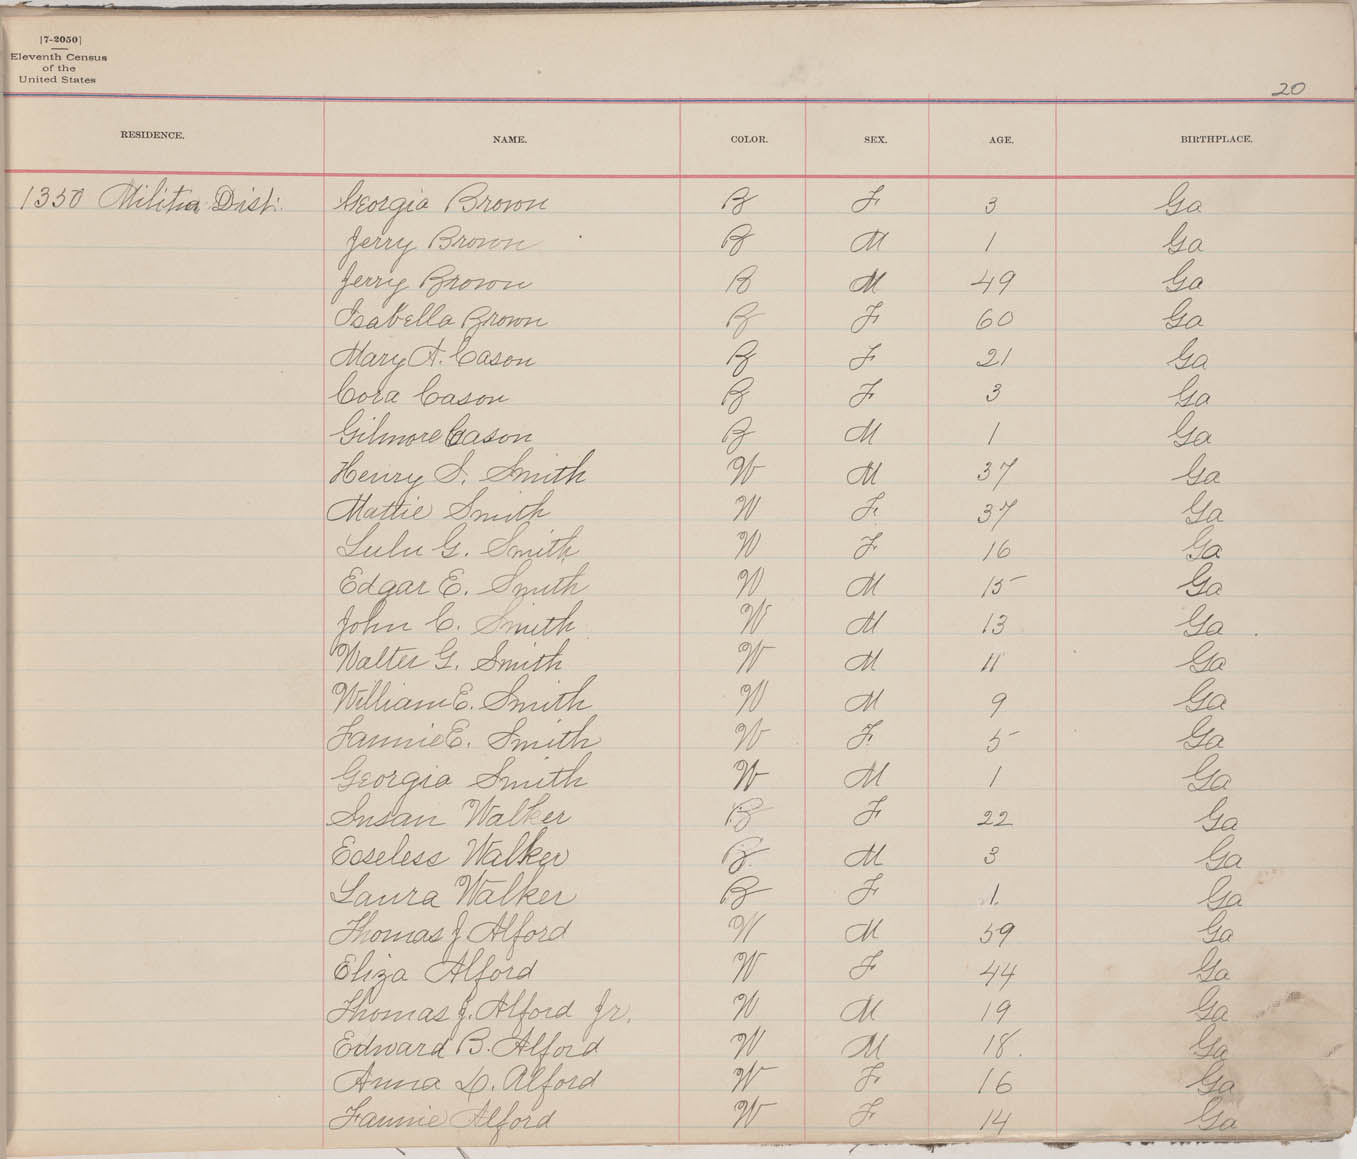 [7-2050]
Eleventh Census
of the
United States
20
RESIDENCE. NAME. COLOR. SEX. AGE. BIRTHPLACE.
1350 Militia Dist. Georgia Brown B F 3 Ga
Jerry Brown B M 1 Ga
Jerry Brown B M 49 Ga
Isabella Brown B F 60 Ga
Mary A. Cason B F 21 Ga
Cora Cason B F 3 Ga
Gilmore Cason B M 1 Ga
Henry S. Smith W M 37 Ga
Mattie Smith W F 37 Ga
Lulu G. Smith W F 16 Ga
Edgar E. Smith W M 15 Ga
John C. Smith W M 13 Ga
Walter G. Smith W M 11 Ga
William E. Smith W M 9 Ga
Fannie E. Smith W F 5 Ga
Georgia Smith W M 1 Ga
Susan Walker B F 22 Ga
Eoseless Walker B M 3 Ga
Laura Walker B F 1 Ga
Thomas J Alford W M 59 Ga
Eliza Alford W F 44 Ga
Thomas J. Alford Jr. W M 19 Ga
Edward B. Alford W M 18. Ga
Anna D. Alford W F 16 Ga
Fannie Alford W F 14 Ga